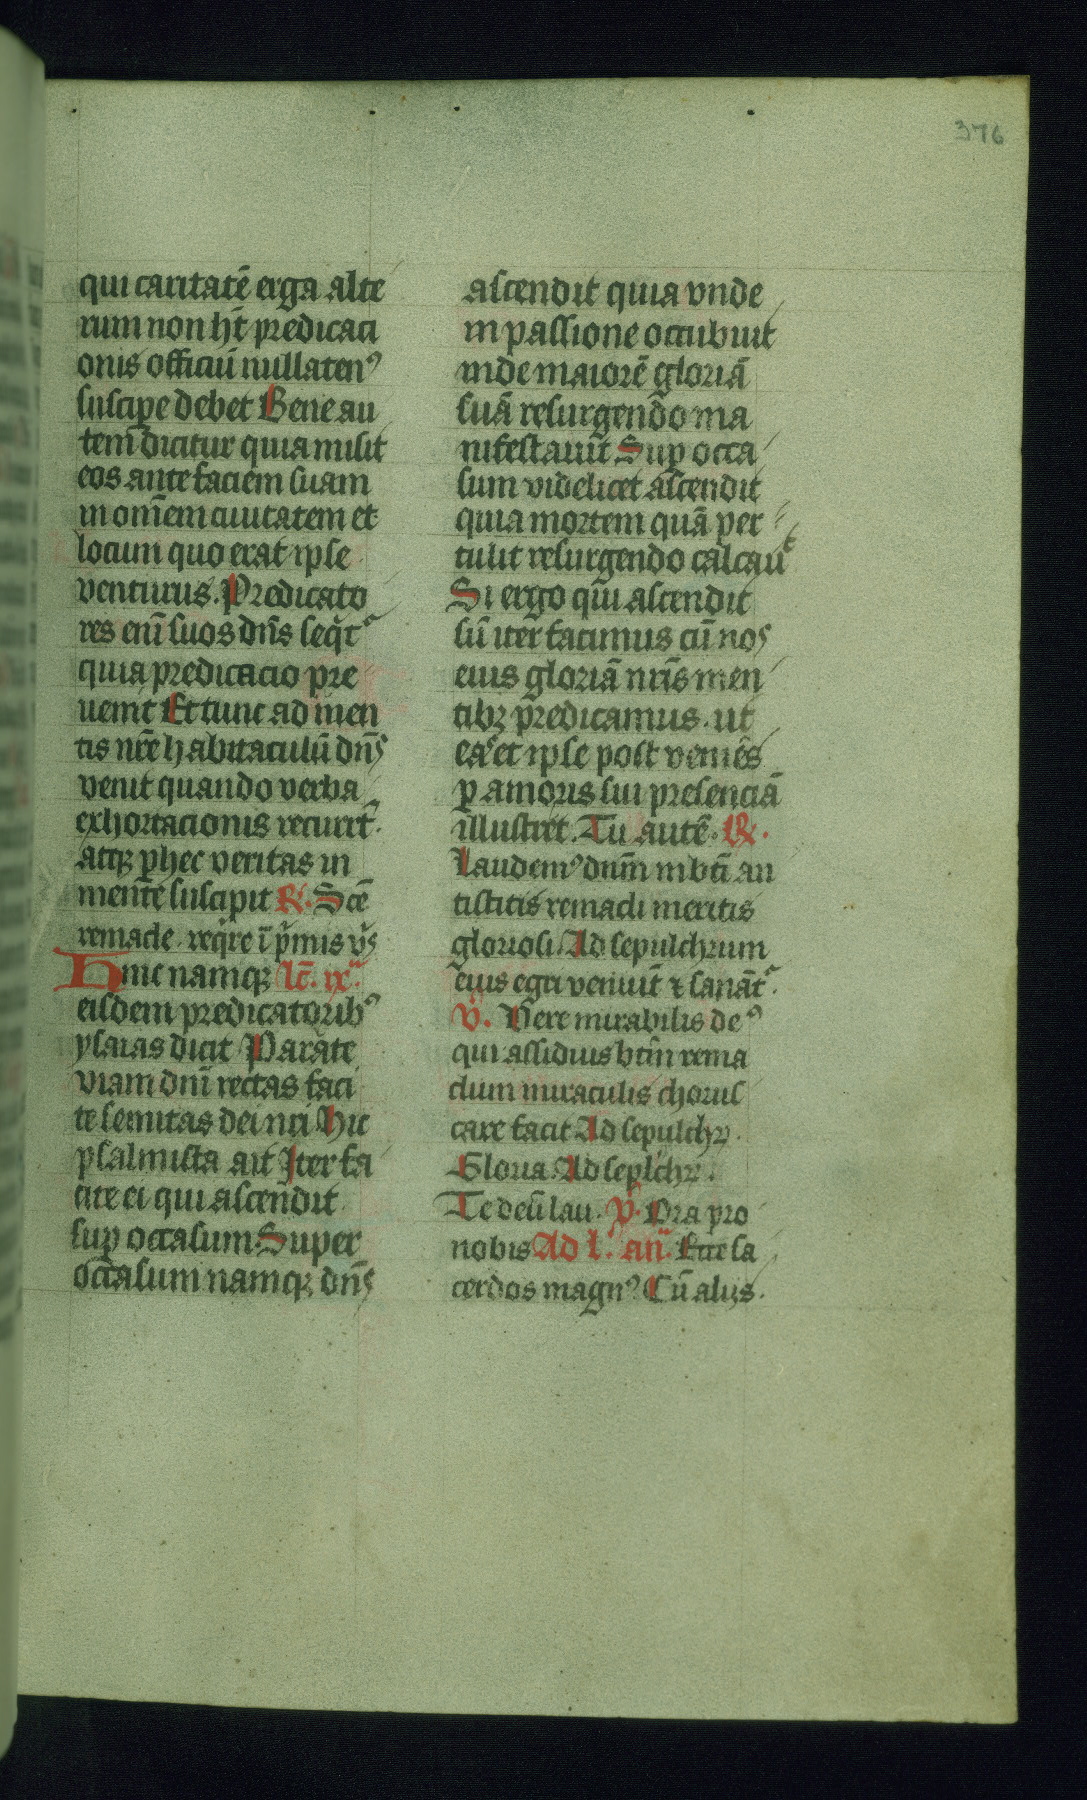 376
qui caritatē erga alte
rum non hȶ predicaci
onis officiū nullatenꝰ
suscipe debet Bene au
tem dicitur quia misit
eos ante faciem suam
in om̄em ciuitatem et
locum quo erat ipse
venturus. Predicato
res enī suos dn̄s seqͥt᷑
quia predicacio pre
uenit Et tunc ad men
tis nr̄e habitaculū dn̄s
venit quando verba
exhortacionis recurrt᷑.
atqꝫ ꝑ hec veritas in
mente suscipit ℟. Sc̄e
remacle. reqͥre ī pͥmis vͦs
Hinc namqꝫ lc̄. ix.ᵃ
eisdem predicatoribꝰ
ysaias dicit Parate
viam dn̄i rectas faci
te semitas dei nr̄i Hinc
psalmista ait Iter fa
cite ei qui ascendit
suꝑ occasum Super
occasum namqꝫ dn̄s
ascendit quia vnde
in passione occubuit
inde maiorē gloriā
suā resurgendo ma
nifestauit Suꝑ occa
sum videlicet ascendit
quia mortem quā per
tulit resurgendo calcauᵗ
Si ergo qui ascendit
sū iter facimus cū nos
eius gloriā nr̄is men
tibꝫ predicamus. ut
eas et ipse post veniēs
ꝑ amoris sui presenciā
illustret. Tu autē. ℟.
Laudemꝰ dn̄m in bt̄i an
tistitis remacli meritis
gloriosi. Ad sepulchrum
eius egri veniūt ⁊ sanāt᷑.
℣. Vere mirabilis deꝰ
qui assidius bt̄m rema
clum miraculis chorus
care facit Ad sepulchꝝ.
Gloria. Ad seplchꝝ.
Te deū lau. ℣. Ora pro
nobis Ad l. an̄. Ecce sa
cerdos magnꝰ Cū alijs.